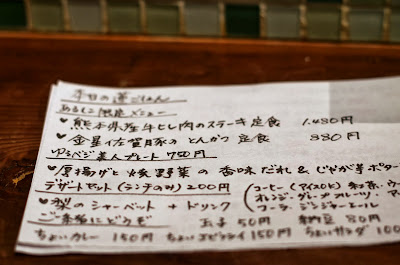 本日の昼ごはん
あるもこ限定メニュー
♥熊本県産牛ヒレ肉のステーキ定食 1,480円
♥金星佐賀豚のとんかつ定食 880円
ゆるベジ美人プレート 750円
♥厚揚げと焼野菜の香味だれ&じゃが芋ポタ
デザートセット(ランチのみ) 200円 (コーヒー(アイスOK) 紅茶、ウー
♥梨のシャーベット + ドリンク オレンジ・グレープ
ご一緒にどうぞ コーラ・ジンジャーエール
玉子 50円 納豆 80円
ちょいカレー 150円 ちょいエビフライ 150円 ちょいサラダ 100